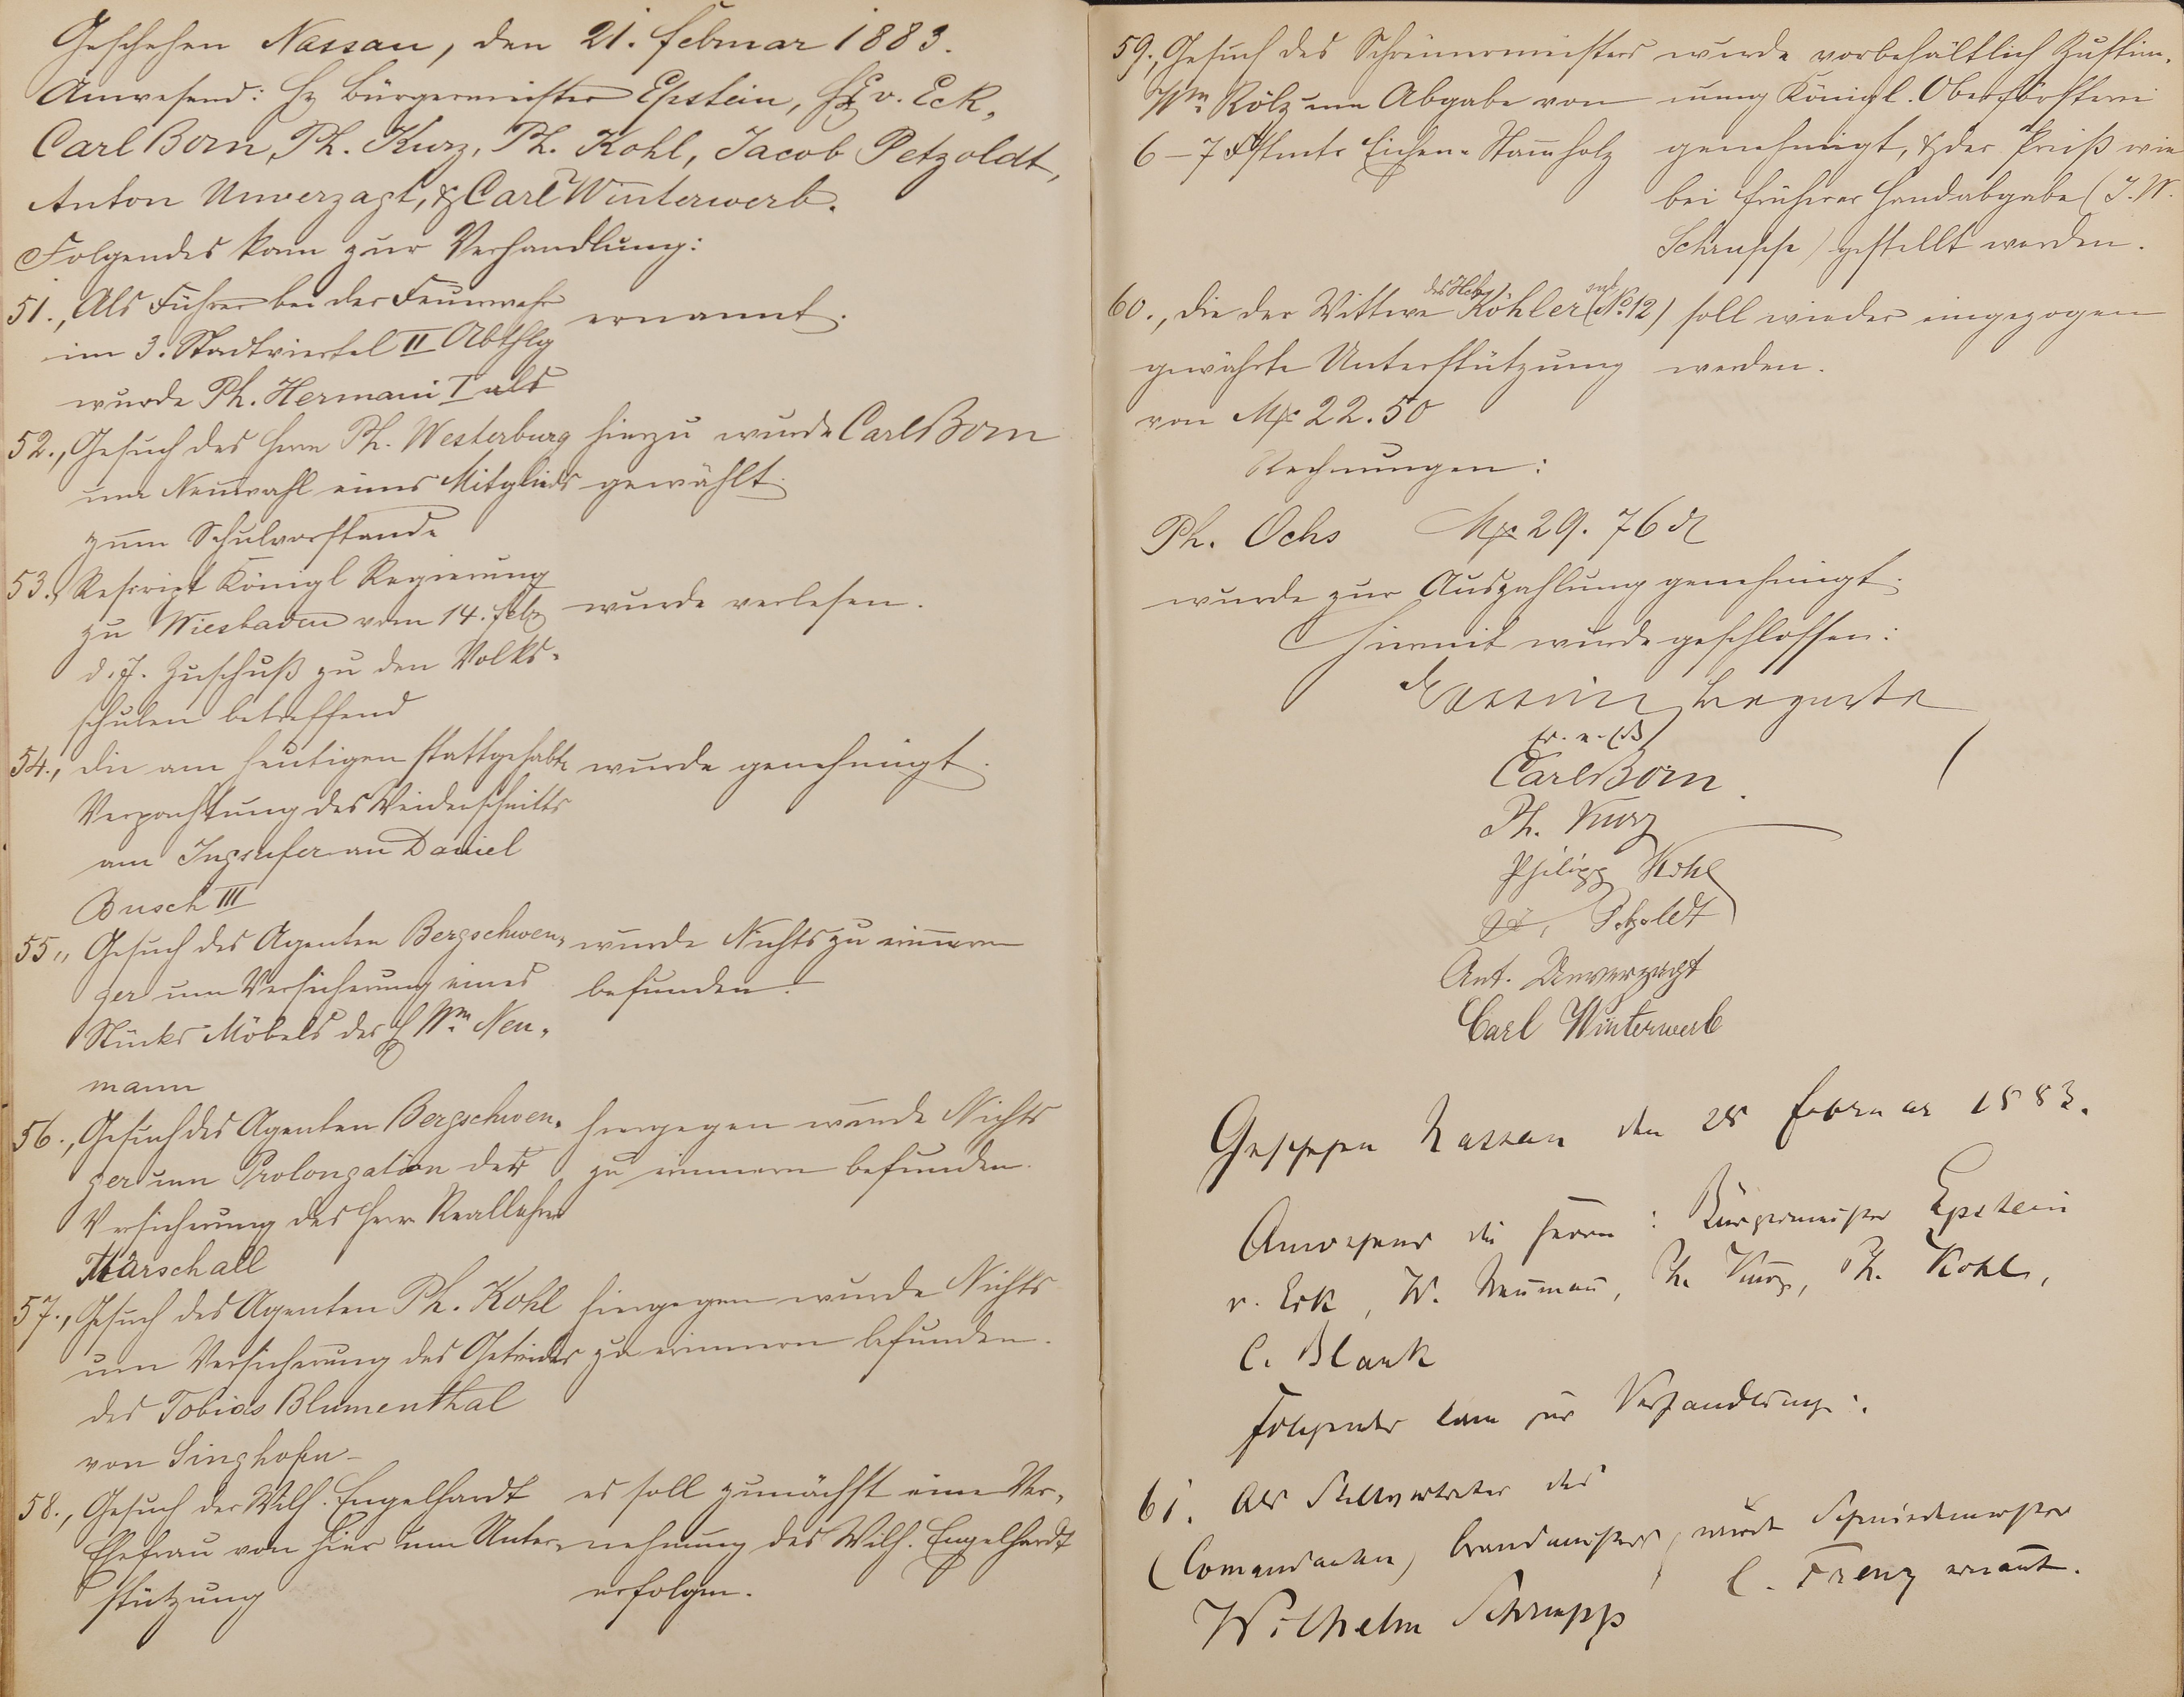 Geschehen Nassau, den 21. Februar 1883.
Anwesend: H. Bürgermeister Epstein, H. v. Eck,
Carl Born, Ph. Kurz, Ph. Kohl, Jacob Petzoldt,
Anton Unverzagt, & Carl Winterwerb.
Folgendes kam zur Verhandlung:
51., Als Führer bei der Feuerwehr
im 3. Stadtviertel II Abthlg
wurde Ph. Hermani I als
ernannt.
52., Gesuch des Herrn Ph. Westerburg
um Neuwahl eines Mitglieds
zum Schulvorstande
hierzu wurde Carl Born
gewählt.
53., Rescript Königl Regierung
zu Wiesbaden vom 14. Febr
d. J. Zuschuß zu den Volks-
schulen betreffend
wurde verlesen.
54., die am heutigen stattgehabte
Verpachtung des Weidenschnitts
am Daniel
Busch III
wurde genehmigt.
55., Gesuch des Agenten Bergschwen-
ger um Versicherung eines
Stücks Möbels des H Wm. Neu-
mann
wurde Nichts zu erinnern
befunden.
56., Gesuch des Agenten Bergschwen-
ger um Prolongation der
Versicherung des Herr Reallehrer
Marschall
hiergegen wurde Nichts
zu erinnern befunden.
57., Gesuch des Agenten Ph. Kohl
um Versicherung des Getreides
des Tobias Blumenthal
von Singhofen
hiergegen wurde Nichts
zu erinnern befunden.
58., Gesuch der Wilh. Engelhardt
Ehefrau von hier um Unter-
stützung
es soll zunächst eine Ver-
nehmung des Wilh. Engelhardt
erfolgen.
59., Gesuch des Schreinermeisters
Wm. Kölz um Abgabe von
6 – 7 Eichen-Stammholz
wurde vorbehältlich Zustim-
mung Königl. Oberförsterei
genehmigt, & der Preiß wie
bei früherer Handabgabe (J. W.
Schrupp) gestellt werden.
60., die der Wittwe Köhler (No. 12)
gewährte Unterstützung
von Mk 22.50
soll wieder eingezogen
werden.
Rechnungen:
Ph. Ochs Mk 29. 76 d
wurde zur Auszahlung genehmigt.
Hiermit wurde geschlossen:
Carl Born
Ph. Kurz
Philipp Kohl
Petzoldt
Ant. Unverzagt
Carl Winterwerb
Geschehen Nassau den 28 Februar 1883.
Anwesend die Herrn: Bürgermeister Epstein
v. Eck, W. Neumann, Ph. Kurz, Ph. Kohl,
C. Blank
Folgendes kam zur Verhandlung:
61. Als Stellvertreter des
(Comandanten) Brandmeisters
Wilhelm Schrupp
wurde Schmiedemeister
C. Frenz ernannt.